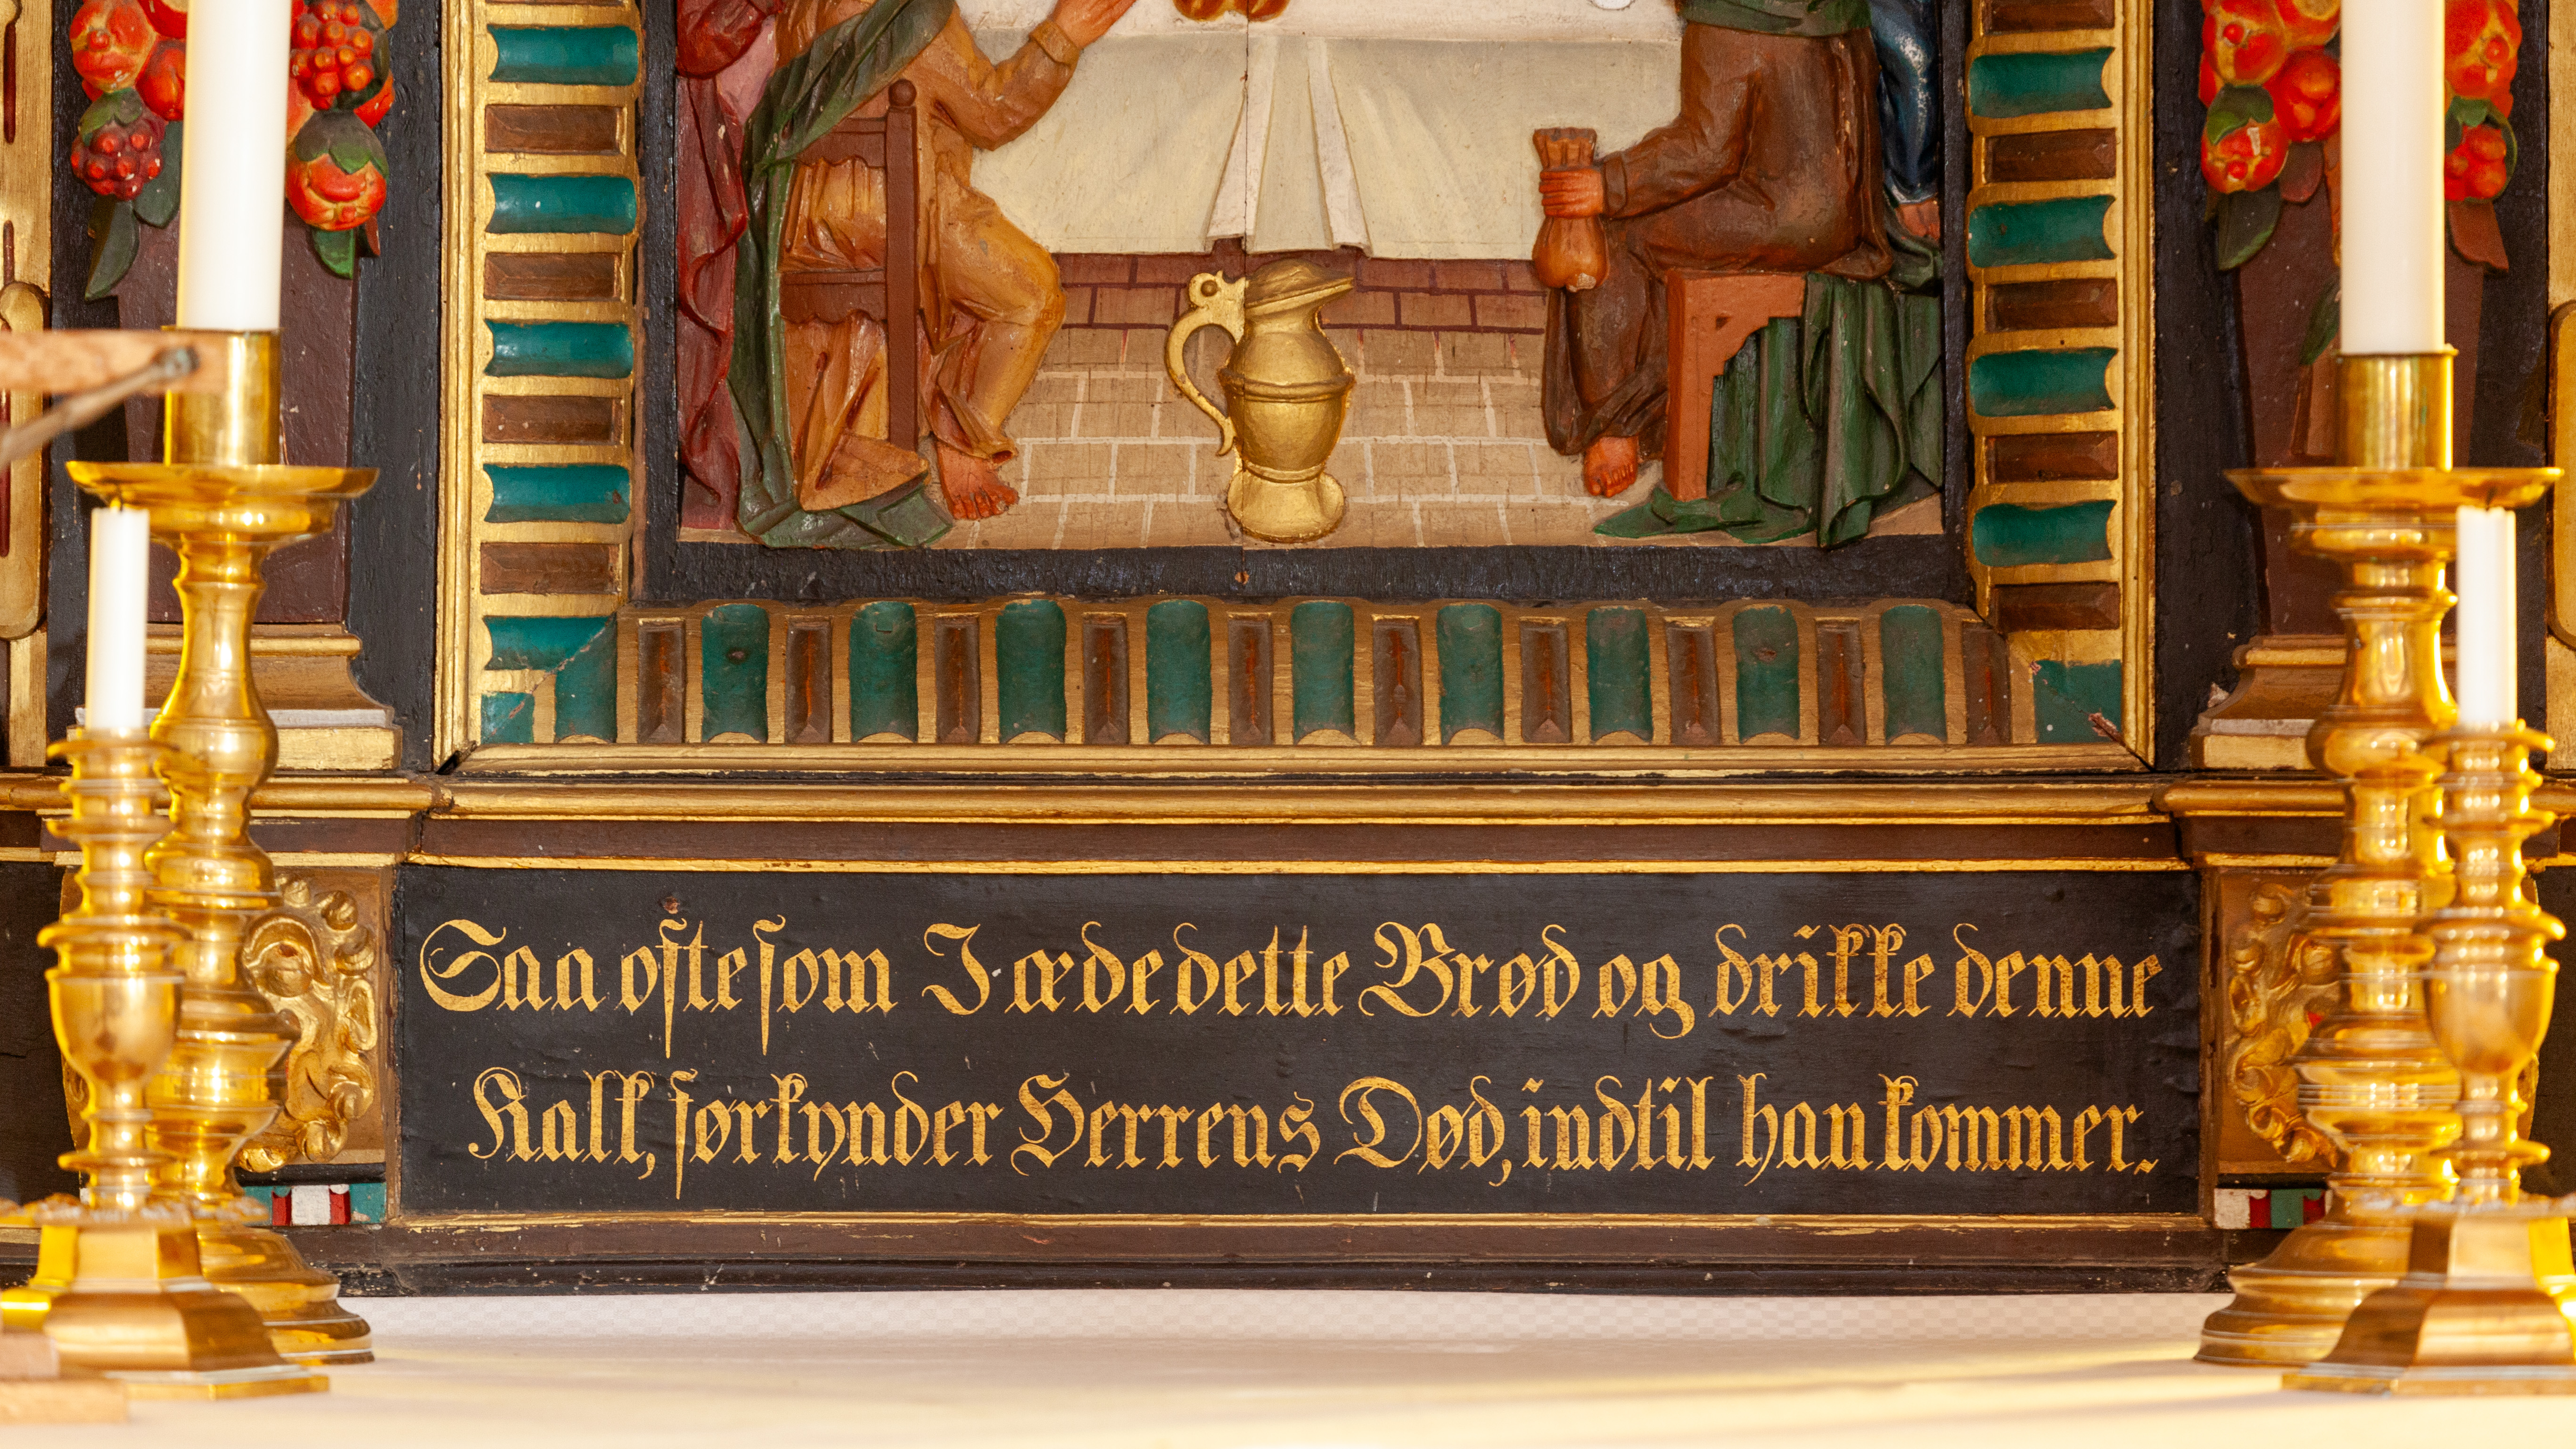 Saa ofte som I æde dette Brød og drikke denne
Kalk, forkynder Herrens Død, indtil han kommer.